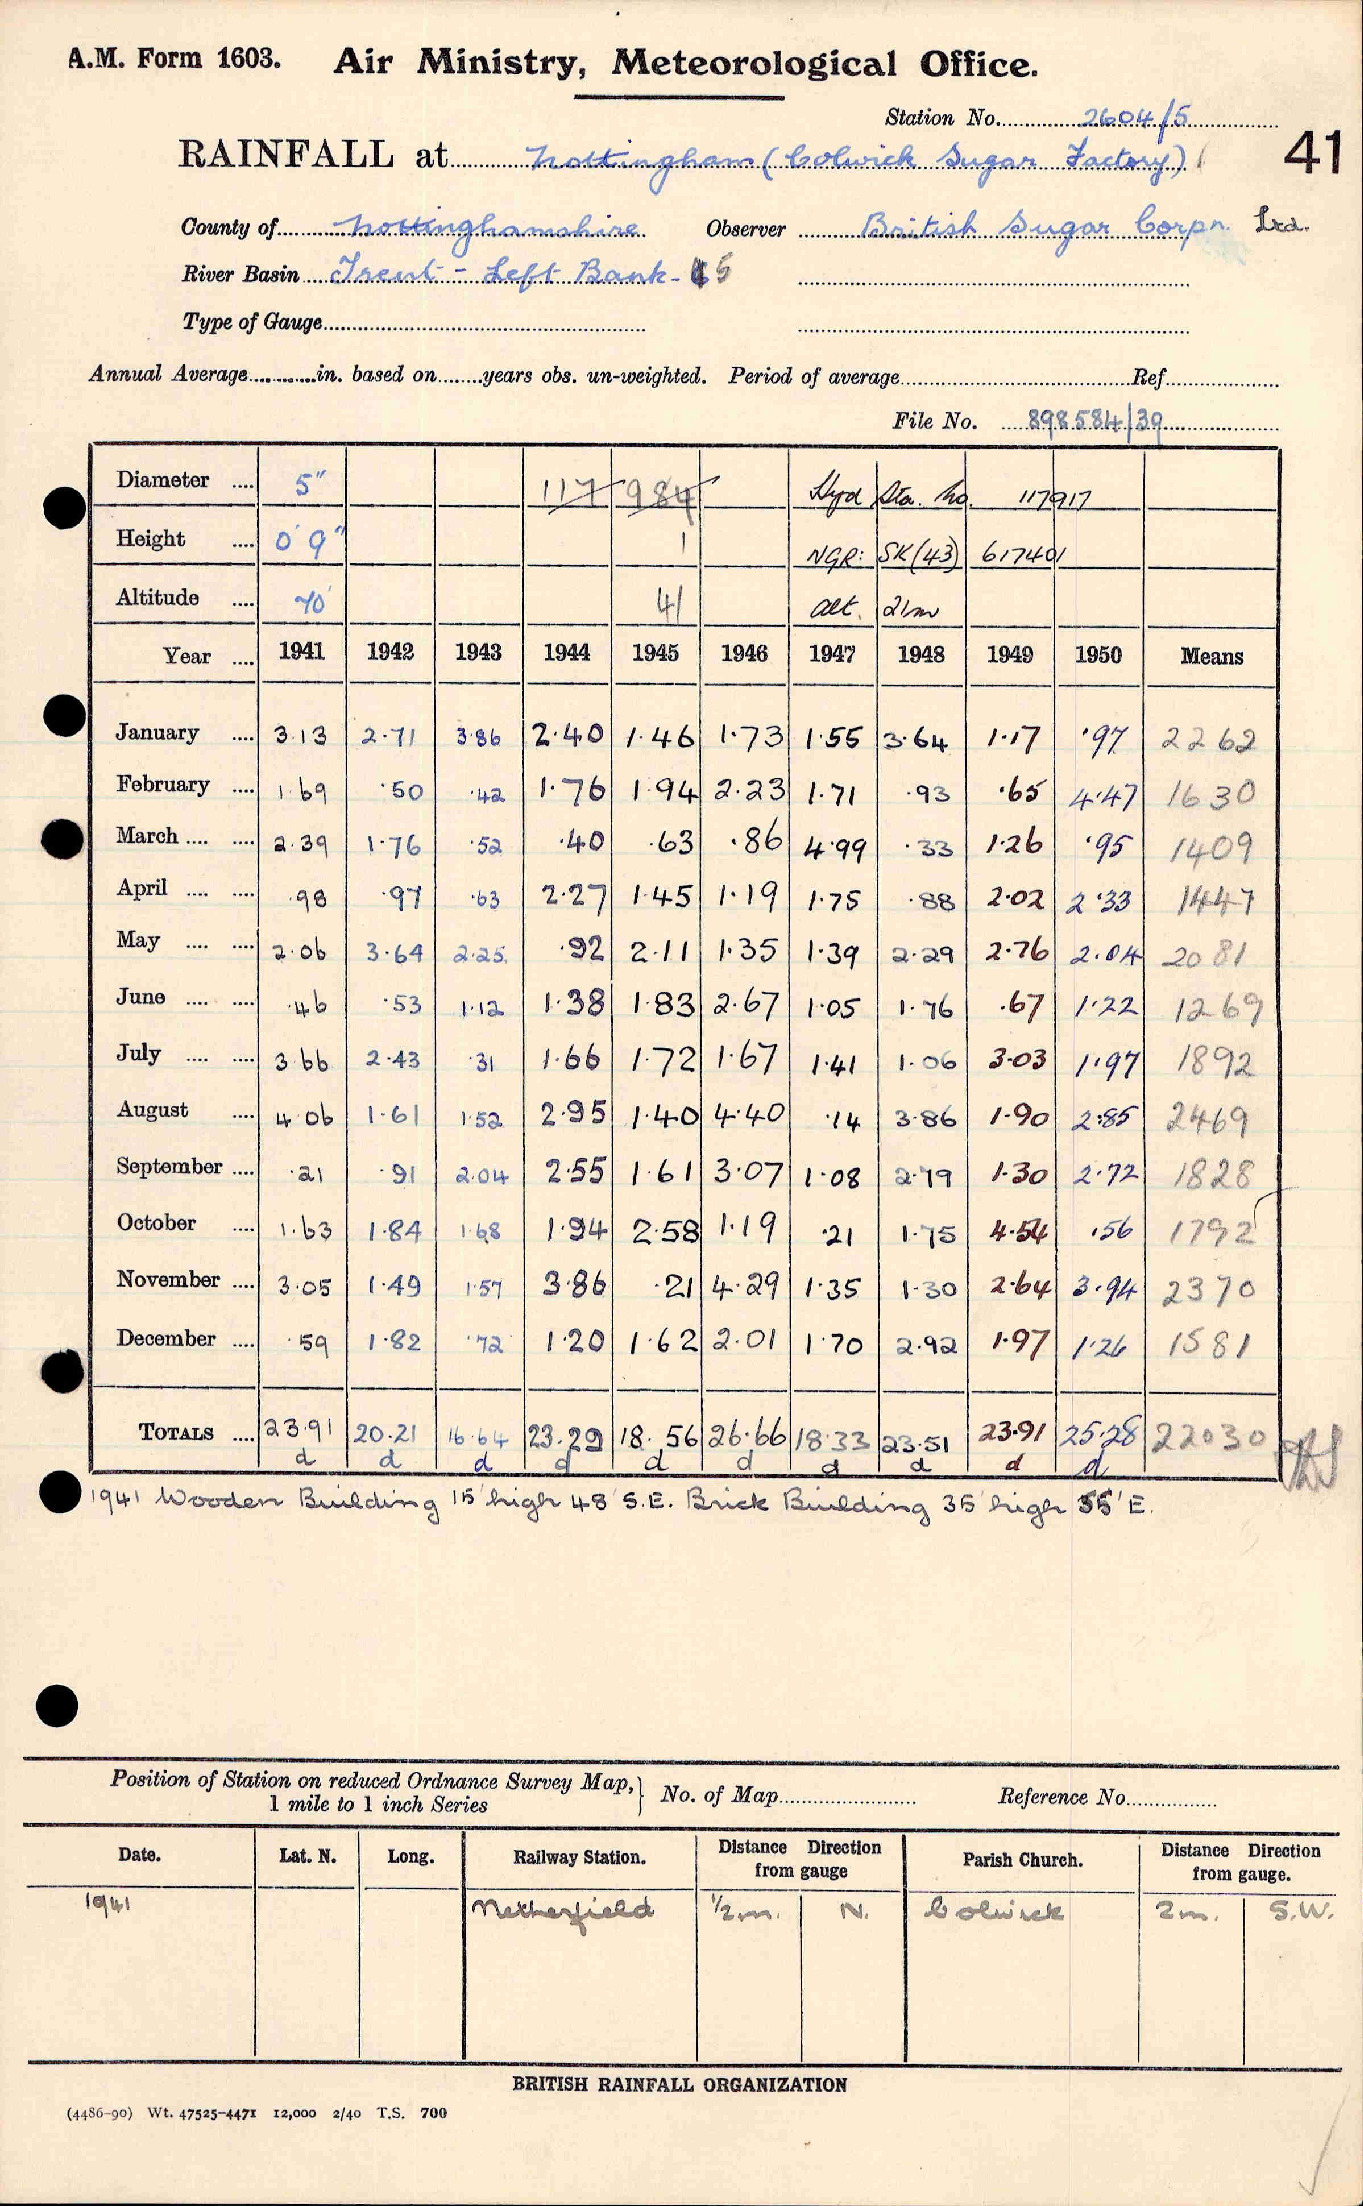 A.M. Form 1603. Air Ministry, Meteorological Office.
Station No. 2604/5
RAINFALL at Nottingham (Colwick Sugar Factory) 41
County of Nottinghamshire Observer British Sugar Corpn. Ltd.
River Basin Trent - Left Bank - 5
Type of Gauge
Annual Average in. based on years obs. un-weighted. Period of average Ref
File No. 898584/39
Diameter 5" 117 984 Hyd Sta. No. 117917
Height 0' 9" 1 NGR: SK(43) 617401
Altitude 70' 41 alt. 21m
Year 1941 1942 1943 1944 1945 1946 1947 1948 1949 1950 Means
January 3.13 2.71 3.86 2.40 1.46 1.73 1.55 3.64 1.17 .97 2262
February 1.69 .50 .42 1.76 1.94 2.23 1.71 .93 .65 4.47 1630
March 2.39 1.76 .52 .40 .63 .86 4.99 .33 1.26 .95 1409
April .98 .97 .63 2.27 1.45 1.19 1.75 .88 2.02 2.33 1447
May 2.06 3.64 2.25 .92 2.11 1.35 1.39 2.29 2.76 2.04 2081
June .46 .53 1.12 1.38 1.83 2.67 1.05 1.76 .67 1.22 1269
July 3.66 2.43 .31 1.66 1.72 1.67 1.41 1.06 3.03 1.97 1892
August 4.06 1.61 1.52 2.95 1.40 4.40 .14 3.86 1.90 2.85 2469
September .21 .91 2.04 2.55 1.61 3.07 1.08 2.79 1.30 2.72 1828
October 1.63 1.84 1.68 1.94 2.58 1.19 .21 1.75 4.54 .56 1792
November 3.05 1.49 1.57 3.86 .21 4.29 1.35 1.30 2.64 3.94 2370
December .59 1.82 .72 1.20 1.62 2.01 1.70 2.92 1.97 1.26 1581
TOTALS 23.91 20.21 16.64 23.29 18.56 26.66 18.33 23.51 23.91 25.28 22030
d d d d d d d d d d
1941 Wooden Building 15' high 48' S.E. Brick Building 35' high 55' E.
Position of Station on reduced Ordnance Survey Map, 1 mile to 1 inch Series } No. of Map Reference No.
Date. Lat. N. Long. Railway Station. Distance Direction from gauge Parish Church. Distance Direction from gauge.
1941 Netherfield 1/2 m. N. Colwick 2 m. S.W.
BRITISH RAINFALL ORGANIZATION
(4486-90) Wt. 47525-4471 12,000 2/40 T.S. 700